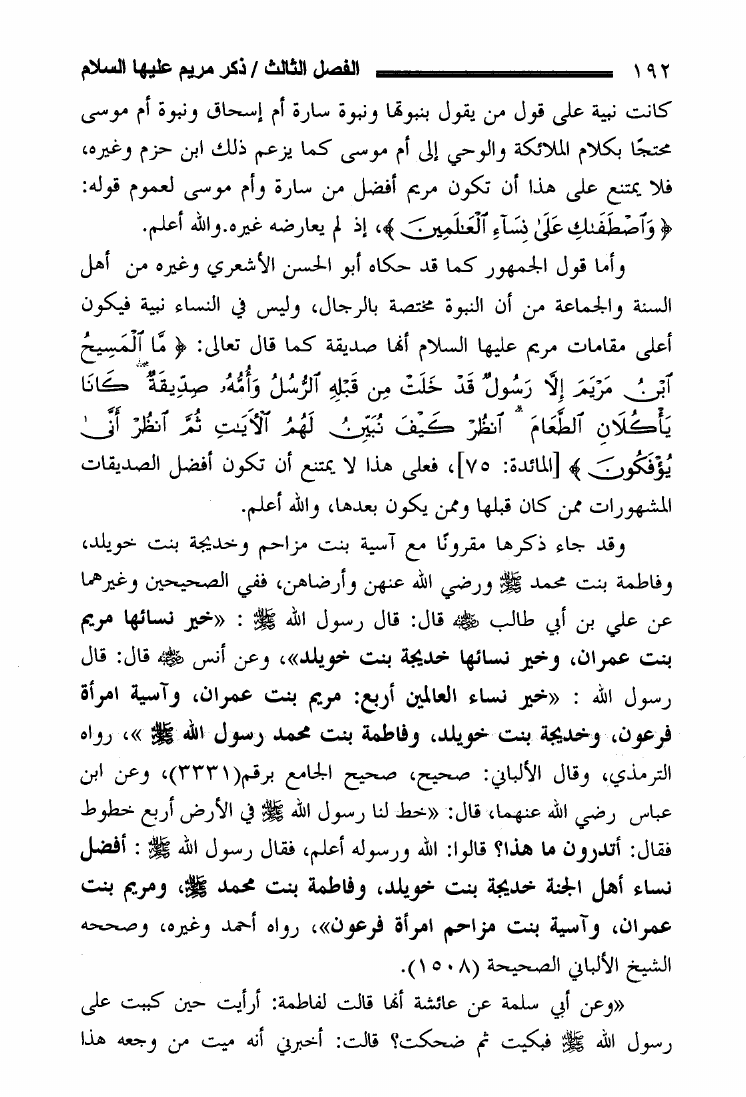 ١٩٢ الفصل الثالث / ذكر مريم عليها السلام
كانت نبية على قول من يقول بنبوتها ونبوة سارة أم إسحاق ونبوة أم موسى
محتجًا بكلام الملائكة والوحي إلى أم موسى كما يزعم ذلك ابن حزم وغيره،
فلا يمتنع على هذا أن تكون مريم أفضل من سارة وأم موسى لعموم قوله:
﴿ وَٱصْطَفَىٰكِ عَلَىٰ نِسَآءِ ٱلْعَـٰلَمِينَ ﴾، إذ لم يعارضه غيره.والله أعلم.
وأما قول الجمهور كما قد حكاه أبو الحسن الأشعري وغيره من أهل
السنة والجماعة من أن النبوة مختصة بالرجال، وليس في النساء نبية فيكون
أعلى مقامات مريم عليها السلام أنها صديقة كما قال تعالى: ﴿ مَّا ٱلْمَسِيحُ
ٱبْنُ مَرْيَمَ إِلَّا رَسُولٌ قَدْ خَلَتْ مِن قَبْلِهِ ٱلرُّسُلُ وَأُمُّهُۥ صِدِّيقَةٌ ۖ كَانَا
يَأْكُلَانِ ٱلطَّعَامَ ۗ ٱنظُرْ كَيْفَ نُبَيِّنُ لَهُمُ ٱلْآيَـٰتِ ثُمَّ ٱنظُرْ أَنَّىٰ
يُؤْفَكُونَ ﴾ [المائدة: ٧٥]، فعلى هذا لا يمتنع أن تكون أفضل الصديقات
المشهورات ممن كان قبلها وممن يكون بعدها، والله أعلم.
وقد جاء ذكرها مقرونًا مع آسية بنت مزاحم وخديجة بنت خويلد،
وفاطمة بنت محمد ﷺ ورضي الله عنهن وأرضاهن، ففي الصحيحين وغيرهما
عن علي بن أبي طالب رضي الله عنه قال: قال رسول الله ﷺ : «خير نسائها مريم
بنت عمران، وخير نسائها خديجة بنت خويلد»، وعن أنس رضي الله عنه قال: قال
رسول الله : «خير نساء العالمين أربع: مريم بنت عمران، وآسية امرأة
فرعون، وخديجة بنت خويلد، وفاطمة بنت محمد رسول الله ﷺ »، رواه
الترمذي، وقال الألباني: صحيح، صحيح الجامع برقم(٣٣٣١)، وعن ابن
عباس رضي الله عنهما، قال: «خط لنا رسول الله ﷺ في الأرض أربع خطوط
فقال: أتدرون ما هذا؟ قالوا: الله ورسوله أعلم، فقال رسول الله ﷺ : أفضل
نساء أهل الجنة خديجة بنت خويلد، وفاطمة بنت محمد ﷺ، ومريم بنت
عمران، وآسية بنت مزاحم امرأة فرعون»، رواه أحمد وغيره، وصححه
الشيخ الألباني الصحيحة (١٥٠٨).
«وعن أبي سلمة عن عائشة أنها قالت لفاطمة: أرأيت حين كببت على
رسول الله ﷺ فبكيت ثم ضحكت؟ قالت: أخبرني أنه ميت من وجعه هذا